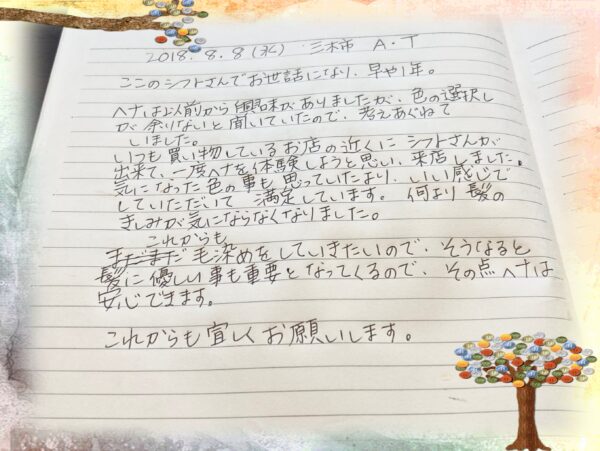 2018.8.8(水) 三木市 A・T
ここのシフトさんでお世話になり、早や1年。
ヘナは以前から興味がありましたが、色の選択し
が余りないと聞いていたので、考えあぐねて
いました。
いつも買い物しているお店の近くにシフトさんが
出来て、一度ヘナを体験しようと思い、来店しました。
気になった色の事も思っていたより、いい感じで
していただいて満足しています。何より髪の
きしみが気にならなくなりました。
これからも
まだまだ毛染めをしていきたいので、そうなると
髪に優しい事も重要となってくるので、その点ヘナは
安心できます。
これからも宜しくお願いします。